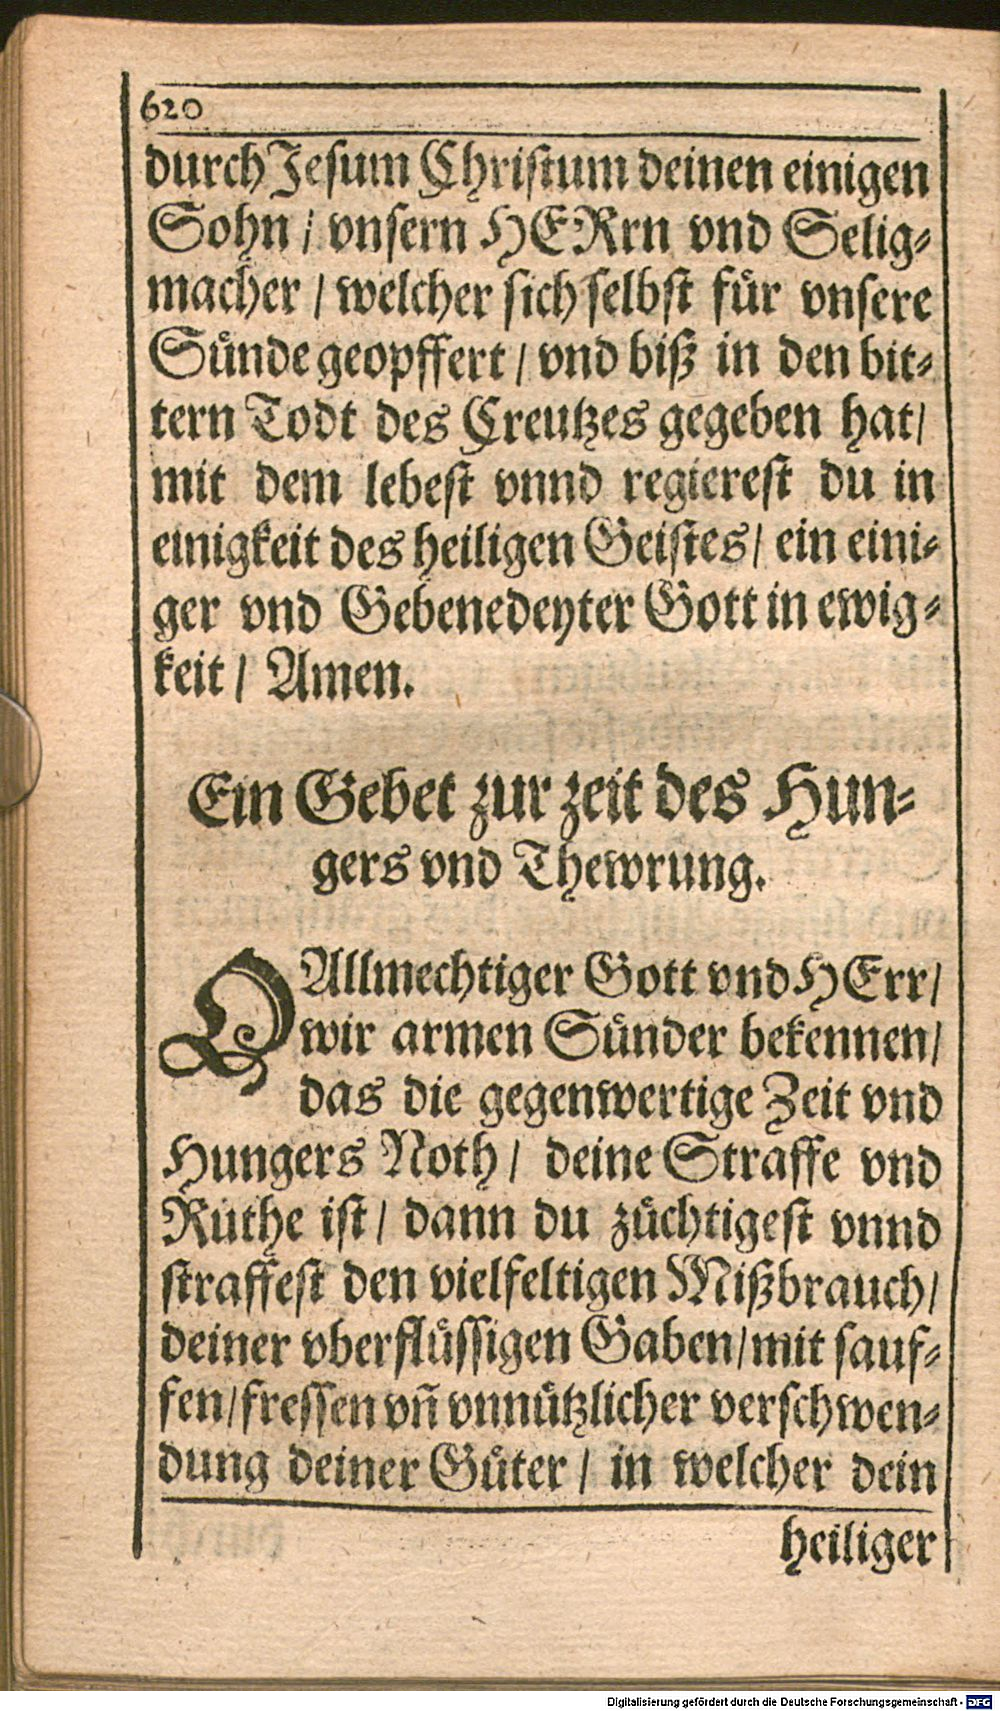 620
durch Jesum Christum deinen einigen
Sohn / vnsern HERrn vnd Selig⸗
macher / welcher sich selbst fuͤr vnsere
Suͤnde geopffert / vnd biß in den bit⸗
tern Todt des Creutzes gegeben hat/
mit dem lebest vnnd regierest du in
einigkeit des heiligen Geistes/ ein eini⸗
ger vnd Gebenedeyter Gott in ewig⸗
keit / Amen.
Ein Gebet zur zeit des Hun⸗
gers vnd Thewrung.
O Allmechtiger Gott vnd HErr/
wir armen Suͤnder bekennen/
das die gegenwertige Zeit vnd
Hungers Noth / deine Straffe vnd
Ruthe ist / dann du zuͤchtigest vnnd
straffest den vielfeltigen Mißbrauch/
deiner vberfluͤssigen Gaben/mit sauf⸗
fen/fressen vñ vnnuͤtzlicher verschwen⸗
dung deiner Guͤter / in welcher dein
heiliger
Digitalisierung gefördert durch die Deutsche Forschungsgemeinschaft - DFG